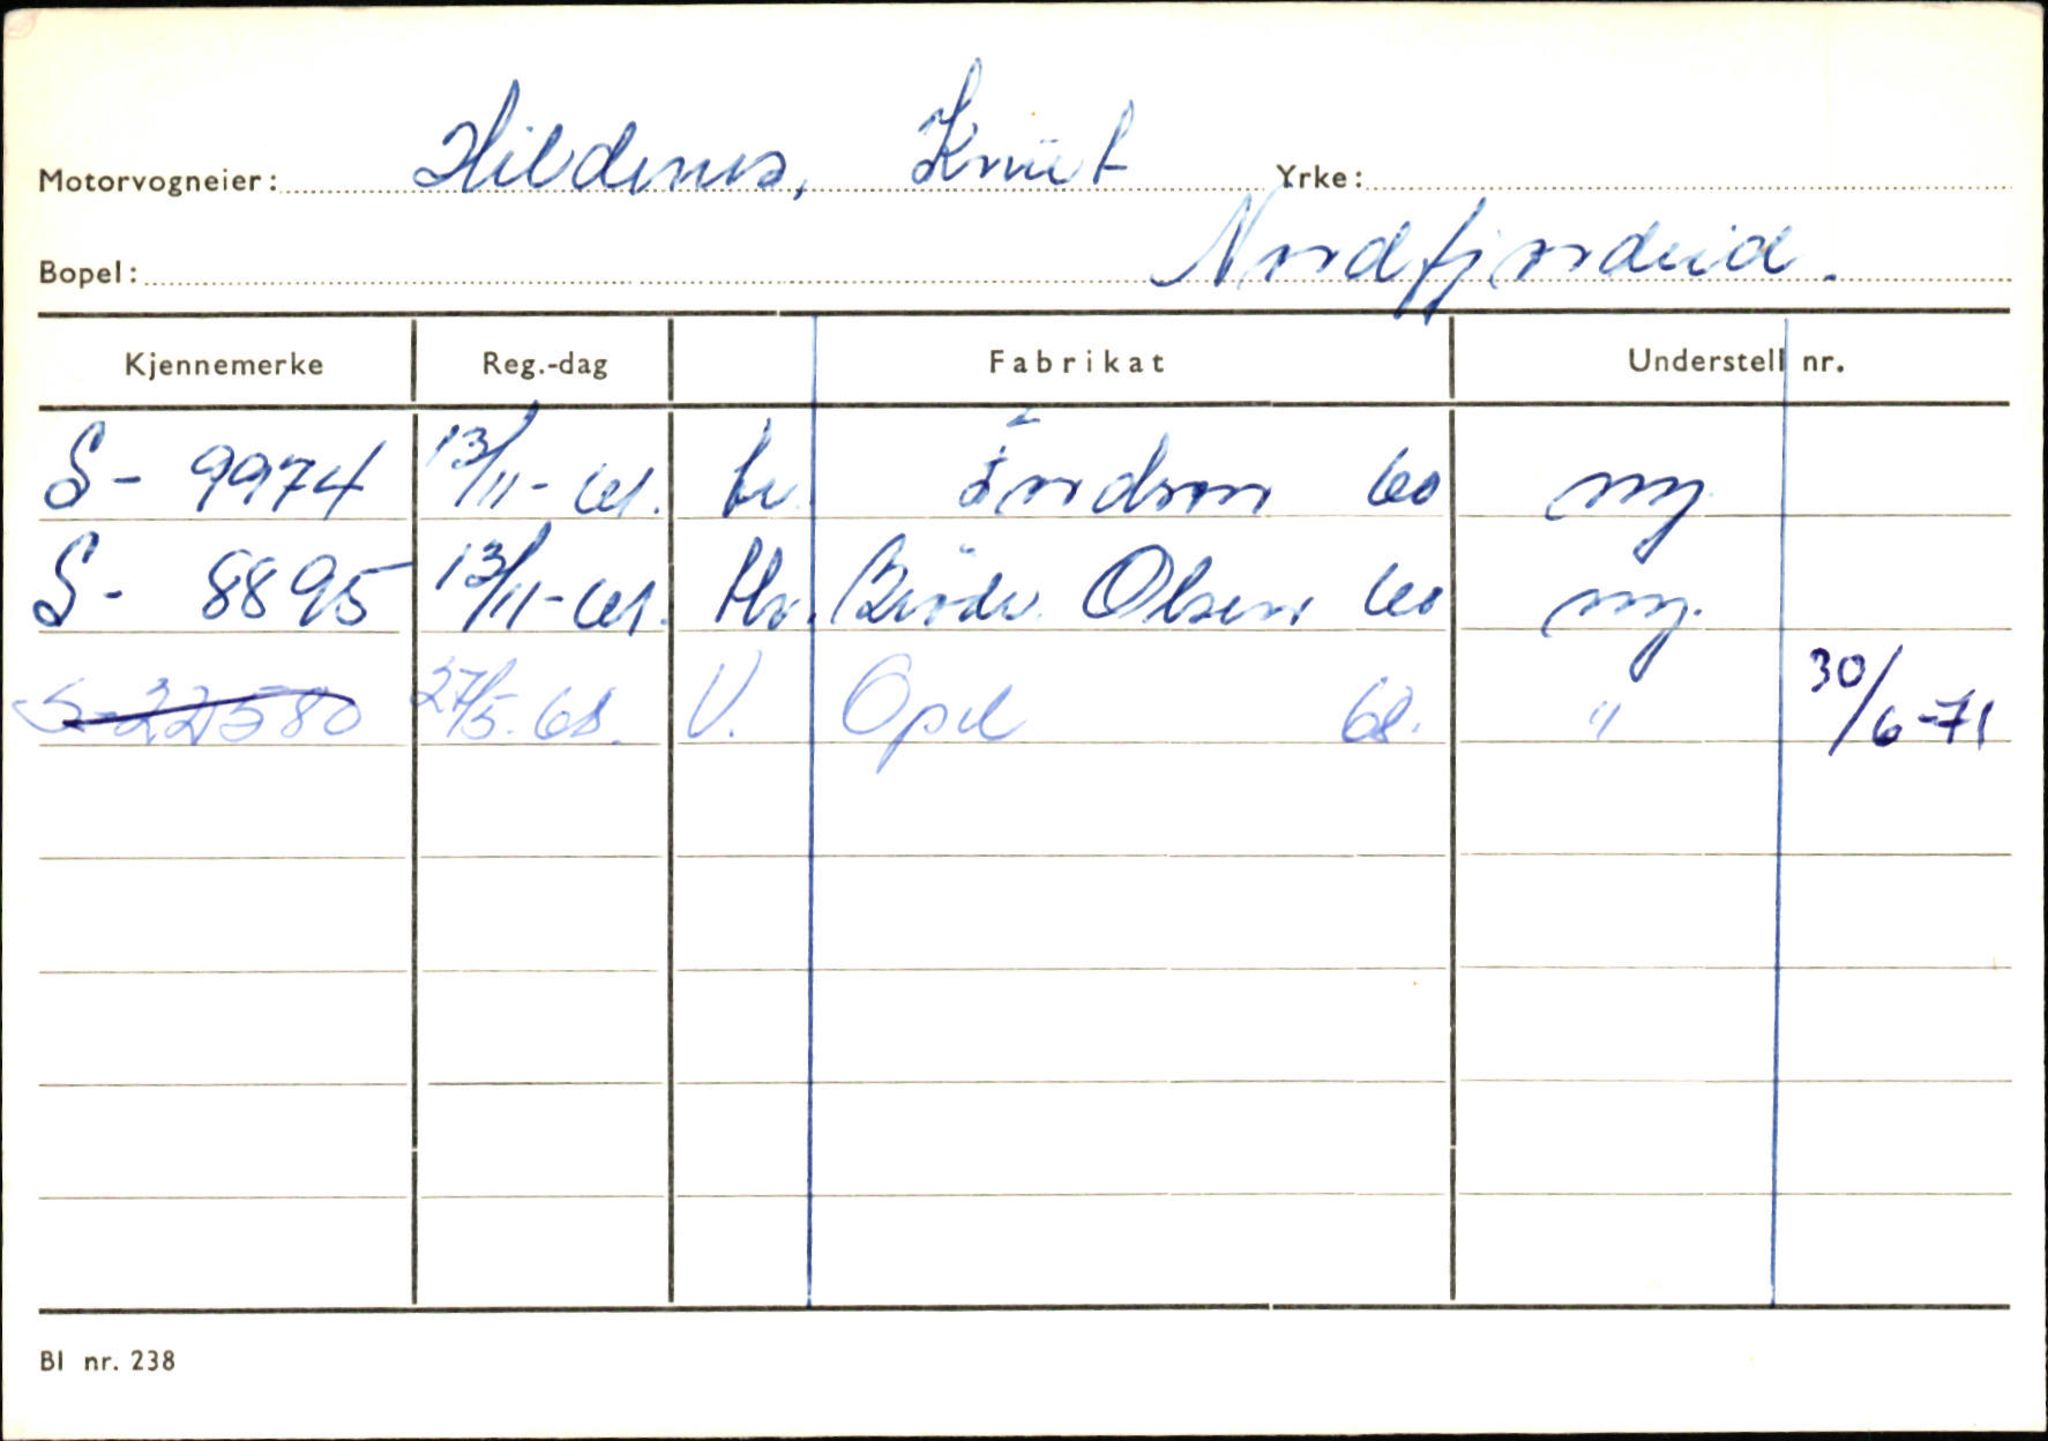 Motorvogneier: Hildenes, Knut Yrke:
Bopel: Nordfjordeid.
Kjennemerke Reg.-dag Fabrikat Understell nr.
S- 9974 13/11-61. Lv. Fordson 60 ny.
S- 8895 13/11-61. Hv. Brödr. Olsen 60 ny.
S-22580 27/5-68. V. Opel 68. " 30/6-71
Bl nr. 238